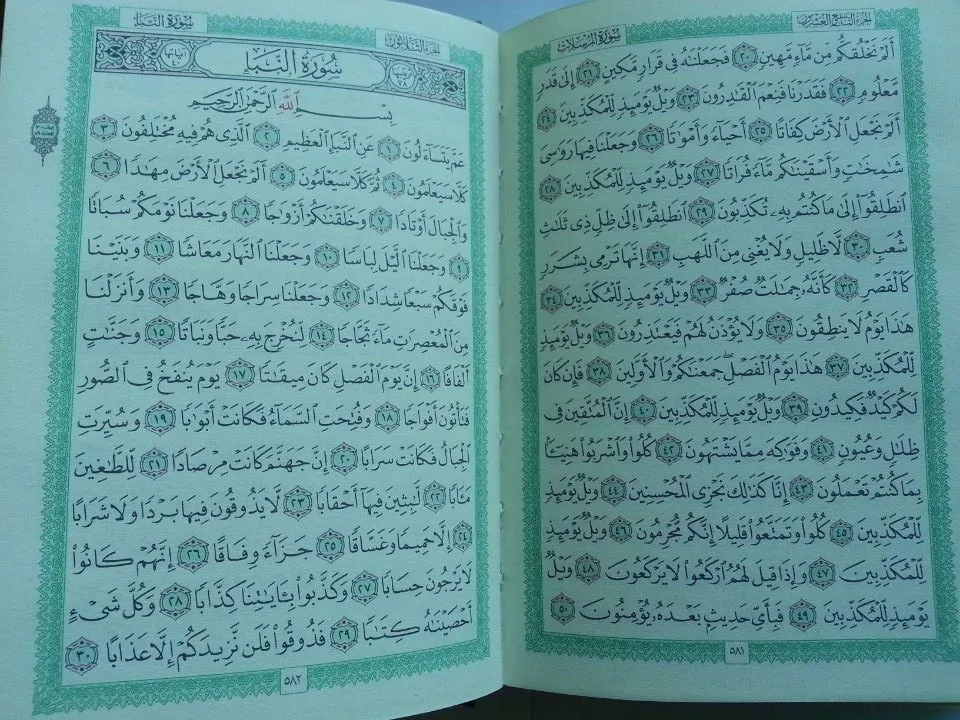 الجزء التاسع والعشرون
سورة المرسلات
أَلَمْ نَخْلُقكُّم مِّن مَّآءٍ مَّهِينٍ ٢٠ فَجَعَلْنَٰهُ فِى قَرَارٍ مَّكِينٍ ٢١ إِلَىٰ قَدَرٍ
مَّعْلُومٍ ٢٢ فَقَدَرْنَا فَنِعْمَ ٱلْقَٰدِرُونَ ٢٣ وَيْلٌ يَوْمَئِذٍ لِّلْمُكَذِّبِينَ ٢٤
أَلَمْ نَجْعَلِ ٱلْأَرْضَ كِفَاتًا ٢٥ أَحْيَآءً وَأَمْوَٰتًا ٢٦ وَجَعَلْنَا فِيهَا رَوَٰسِىَ
شَٰمِخَٰتٍ وَأَسْقَيْنَٰكُم مَّآءً فُرَاتًا ٢٧ وَيْلٌ يَوْمَئِذٍ لِّلْمُكَذِّبِينَ ٢٨
ٱنطَلِقُوٓا۟ إِلَىٰ مَا كُنتُم بِهِۦ تُكَذِّبُونَ ٢٩ ٱنطَلِقُوٓا۟ إِلَىٰ ظِلٍّ ذِى ثَلَٰثِ
شُعَبٍ ٣٠ لَّا ظَلِيلٍ وَلَا يُغْنِى مِنَ ٱللَّهَبِ ٣١ إِنَّهَا تَرْمِى بِشَرَرٍ
كَٱلْقَصْرِ ٣٢ كَأَنَّهُۥ جِمَٰلَتٌ صُفْرٌ ٣٣ وَيْلٌ يَوْمَئِذٍ لِّلْمُكَذِّبِينَ ٣٤
هَٰذَا يَوْمُ لَا يَنطِقُونَ ٣٥ وَلَا يُؤْذَنُ لَهُمْ فَيَعْتَذِرُونَ ٣٦ وَيْلٌ يَوْمَئِذٍ
لِّلْمُكَذِّبِينَ ٣٧ هَٰذَا يَوْمُ ٱلْفَصْلِ ۖ جَمَعْنَٰكُمْ وَٱلْأَوَّلِينَ ٣٨ فَإِن كَانَ
لَكُمْ كَيْدٌ فَكِيدُونِ ٣٩ وَيْلٌ يَوْمَئِذٍ لِّلْمُكَذِّبِينَ ٤٠ إِنَّ ٱلْمُتَّقِينَ فِى
ظِلَٰلٍ وَعُيُونٍ ٤١ وَفَوَٰكِهَ مِمَّا يَشْتَهُونَ ٤٢ كُلُوا۟ وَٱشْرَبُوا۟ هَنِيٓـًٔۢا
بِمَا كُنتُمْ تَعْمَلُونَ ٤٣ إِنَّا كَذَٰلِكَ نَجْزِى ٱلْمُحْسِنِينَ ٤٤ وَيْلٌ يَوْمَئِذٍ
لِّلْمُكَذِّبِينَ ٤٥ كُلُوا۟ وَتَمَتَّعُوا۟ قَلِيلًا إِنَّكُم مُّجْرِمُونَ ٤٦ وَيْلٌ يَوْمَئِذٍ
لِّلْمُكَذِّبِينَ ٤٧ وَإِذَا قِيلَ لَهُمُ ٱرْكَعُوا۟ لَا يَرْكَعُونَ ٤٨ وَيْلٌ
يَوْمَئِذٍ لِّلْمُكَذِّبِينَ ٤٩ فَبِأَىِّ حَدِيثٍۭ بَعْدَهُۥ يُؤْمِنُونَ ٥٠
٥٨١
الجزء الثلاثون
سورة النبإ
سُورَةُ النَّبَإِ
بِسْمِ ٱللَّهِ ٱلرَّحْمَٰنِ ٱلرَّحِيمِ
عَمَّ يَتَسَآءَلُونَ ١ عَنِ ٱلنَّبَإِ ٱلْعَظِيمِ ٢ ٱلَّذِى هُمْ فِيهِ مُخْتَلِفُونَ ٣
كَلَّا سَيَعْلَمُونَ ٤ ثُمَّ كَلَّا سَيَعْلَمُونَ ٥ أَلَمْ نَجْعَلِ ٱلْأَرْضَ مِهَٰدًا ٦
وَٱلْجِبَالَ أَوْتَادًا ٧ وَخَلَقْنَٰكُمْ أَزْوَٰجًا ٨ وَجَعَلْنَا نَوْمَكُمْ سُبَاتًا
٩ وَجَعَلْنَا ٱلَّيْلَ لِبَاسًا ١٠ وَجَعَلْنَا ٱلنَّهَارَ مَعَاشًا ١١ وَبَنَيْنَا
فَوْقَكُمْ سَبْعًا شِدَادًا ١٢ وَجَعَلْنَا سِرَاجًا وَهَّاجًا ١٣ وَأَنزَلْنَا
مِنَ ٱلْمُعْصِرَٰتِ مَآءً ثَجَّاجًا ١٤ لِّنُخْرِجَ بِهِۦ حَبًّا وَنَبَاتًا ١٥ وَجَنَّٰتٍ
أَلْفَافًا ١٦ إِنَّ يَوْمَ ٱلْفَصْلِ كَانَ مِيقَٰتًا ١٧ يَوْمَ يُنفَخُ فِى ٱلصُّورِ
فَتَأْتُونَ أَفْوَاجًا ١٨ وَفُتِحَتِ ٱلسَّمَآءُ فَكَانَتْ أَبْوَٰبًا ١٩ وَسُيِّرَتِ
ٱلْجِبَالُ فَكَانَتْ سَرَابًا ٢٠ إِنَّ جَهَنَّمَ كَانَتْ مِرْصَادًا ٢١ لِّلطَّٰغِينَ
مَـَٔابًا ٢٢ لَّٰبِثِينَ فِيهَآ أَحْقَابًا ٢٣ لَّا يَذُوقُونَ فِيهَا بَرْدًا وَلَا شَرَابًا
٢٤ إِلَّا حَمِيمًا وَغَسَّاقًا ٢٥ جَزَآءً وِفَاقًا ٢٦ إِنَّهُمْ كَانُوا۟
لَا يَرْجُونَ حِسَابًا ٢٧ وَكَذَّبُوا۟ بِـَٔايَٰتِنَا كِذَّابًا ٢٨ وَكُلَّ شَىْءٍ
أَحْصَيْنَٰهُ كِتَٰبًا ٢٩ فَذُوقُوا۟ فَلَن نَّزِيدَكُمْ إِلَّا عَذَابًا ٣٠
٥٨٢